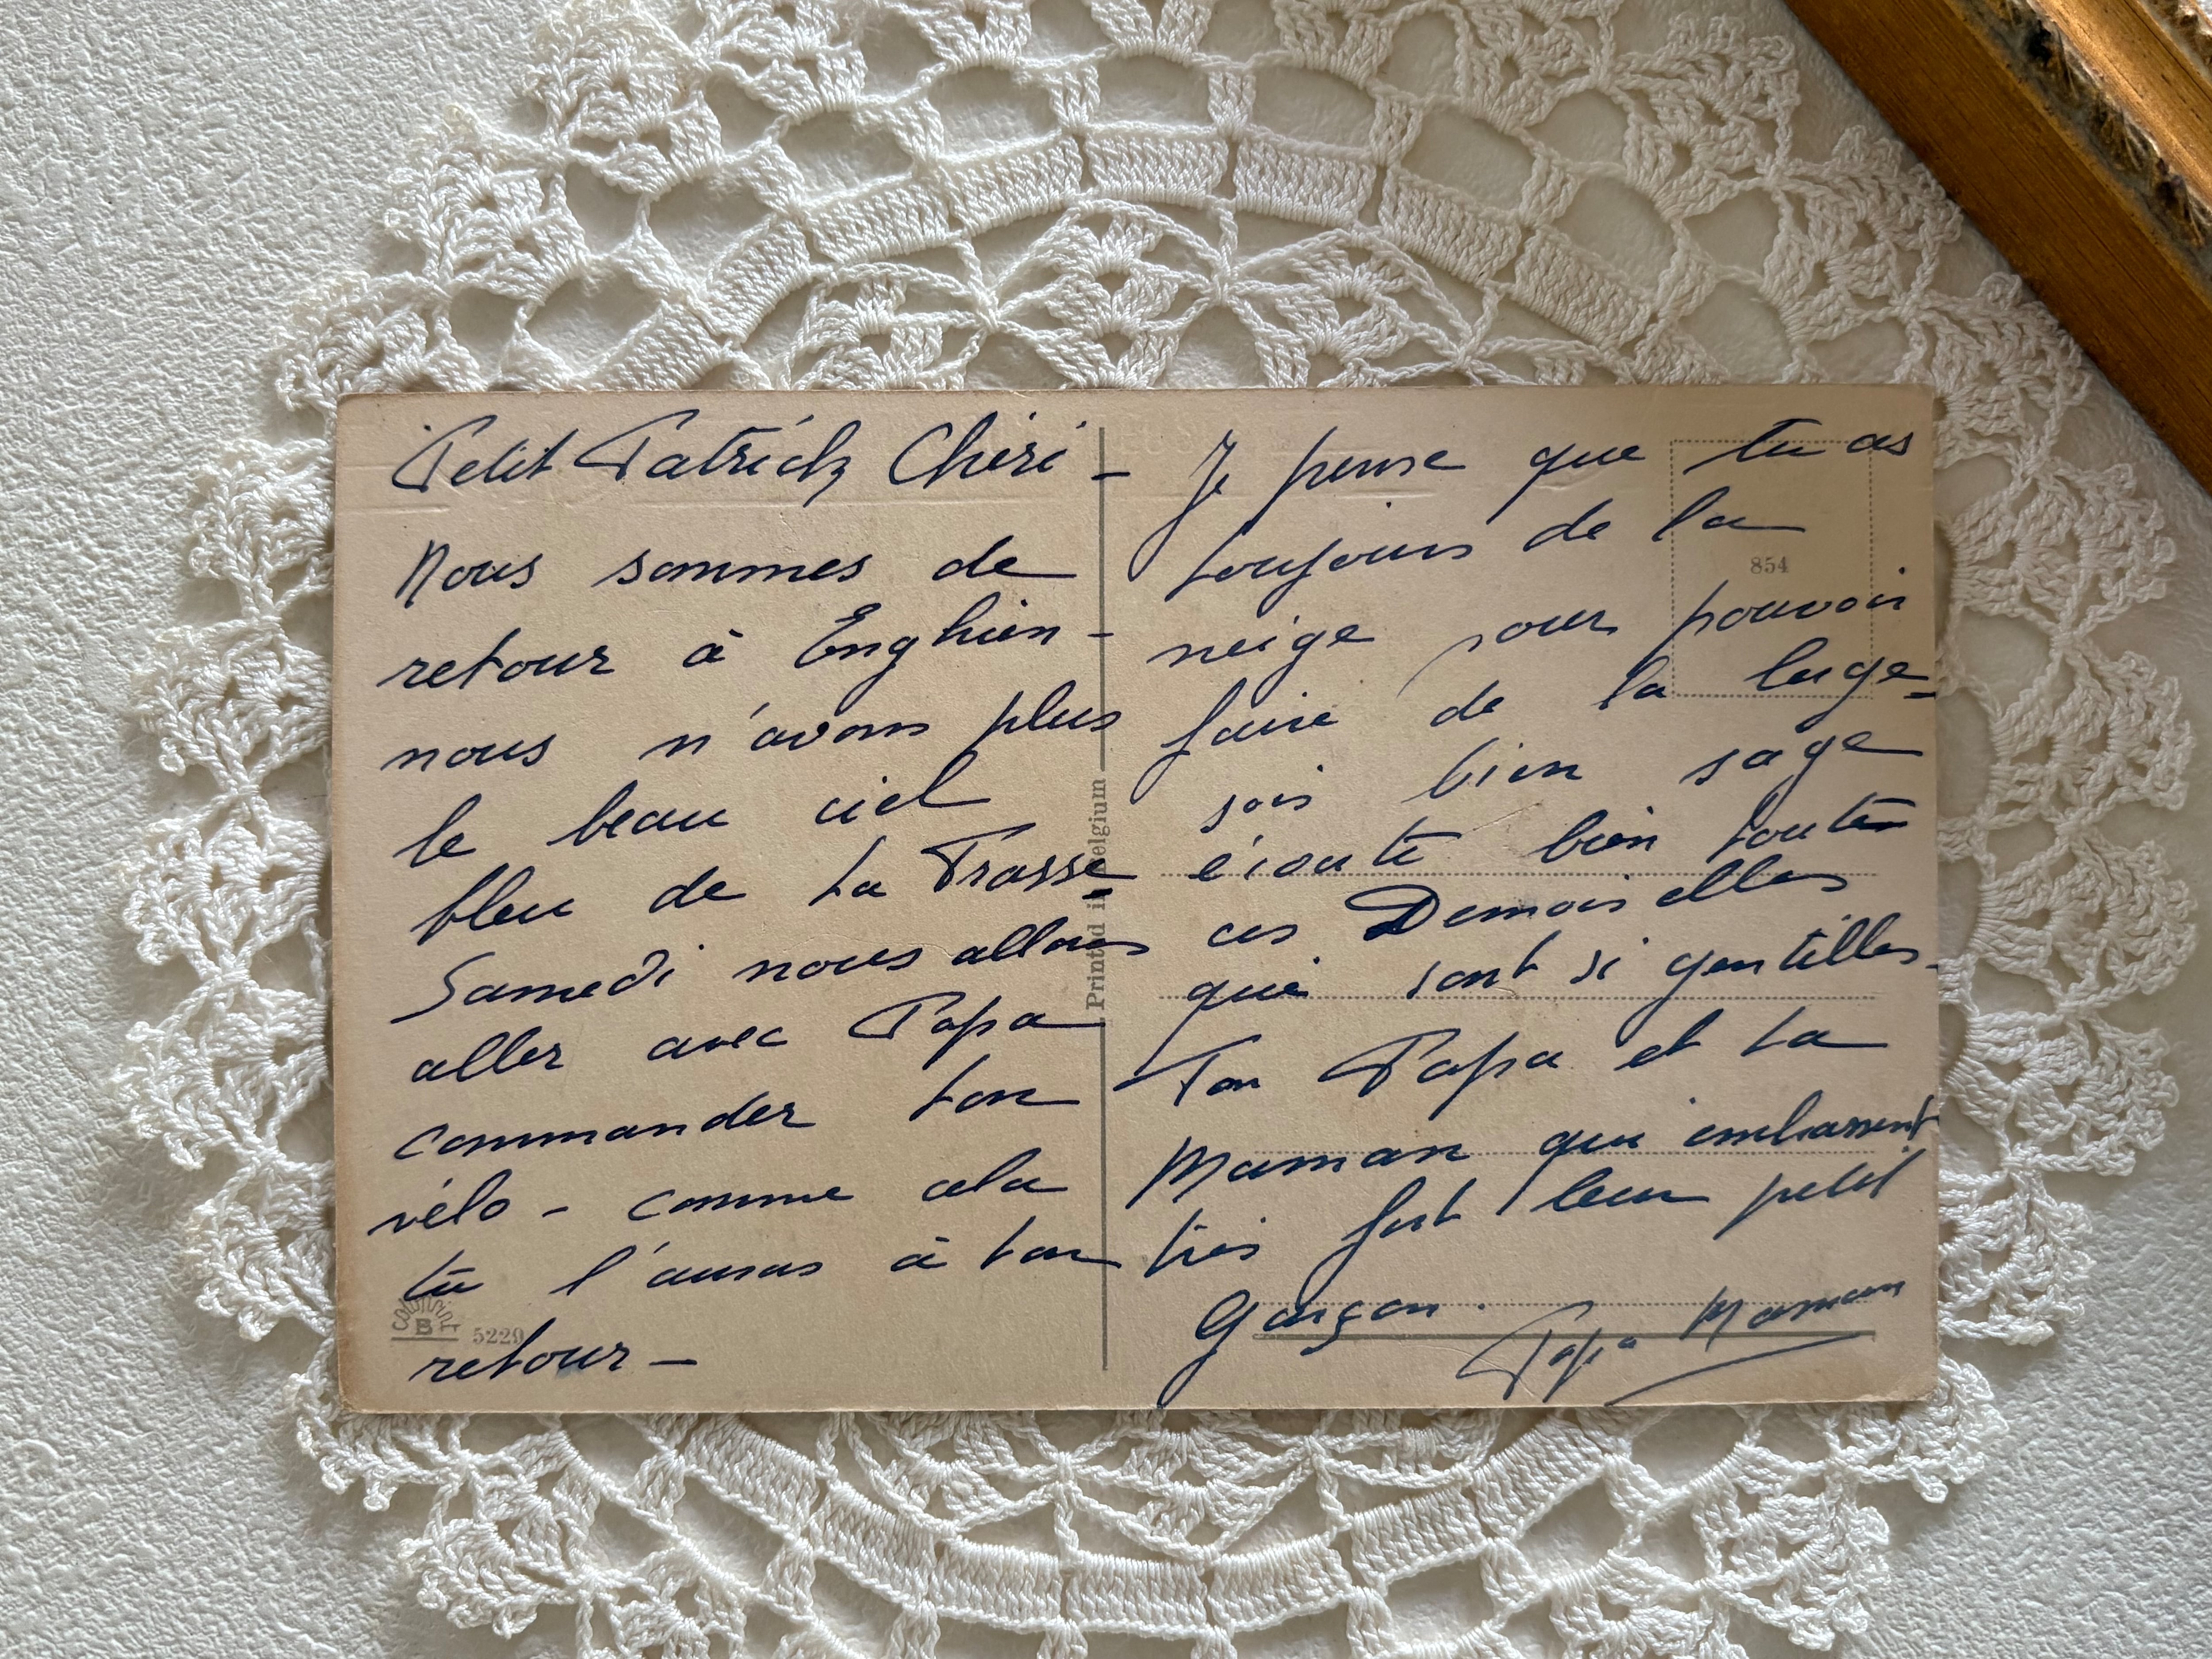 Petit Patrick Chéri –
Nous sommes de
retour à Enghien –
nous n'avons plus
le beau ciel
bleu de ta Trasse –
Samedi nous allons
aller avec Papa
commander ton
vélo – comme cela
tu l'auras à ton
retour –
Colorprint
B 5229
Printed in Belgium
Je pense que tu as
toujours de la
854
neige pour pouvoir
faire de la luge –
sois bien sage
écoute bien toutes
ces Demoiselles
qui sont si gentilles –
Ton Papa et ta
Maman qui embrassent
très fort leur petit
Garçon.
Papa Maman